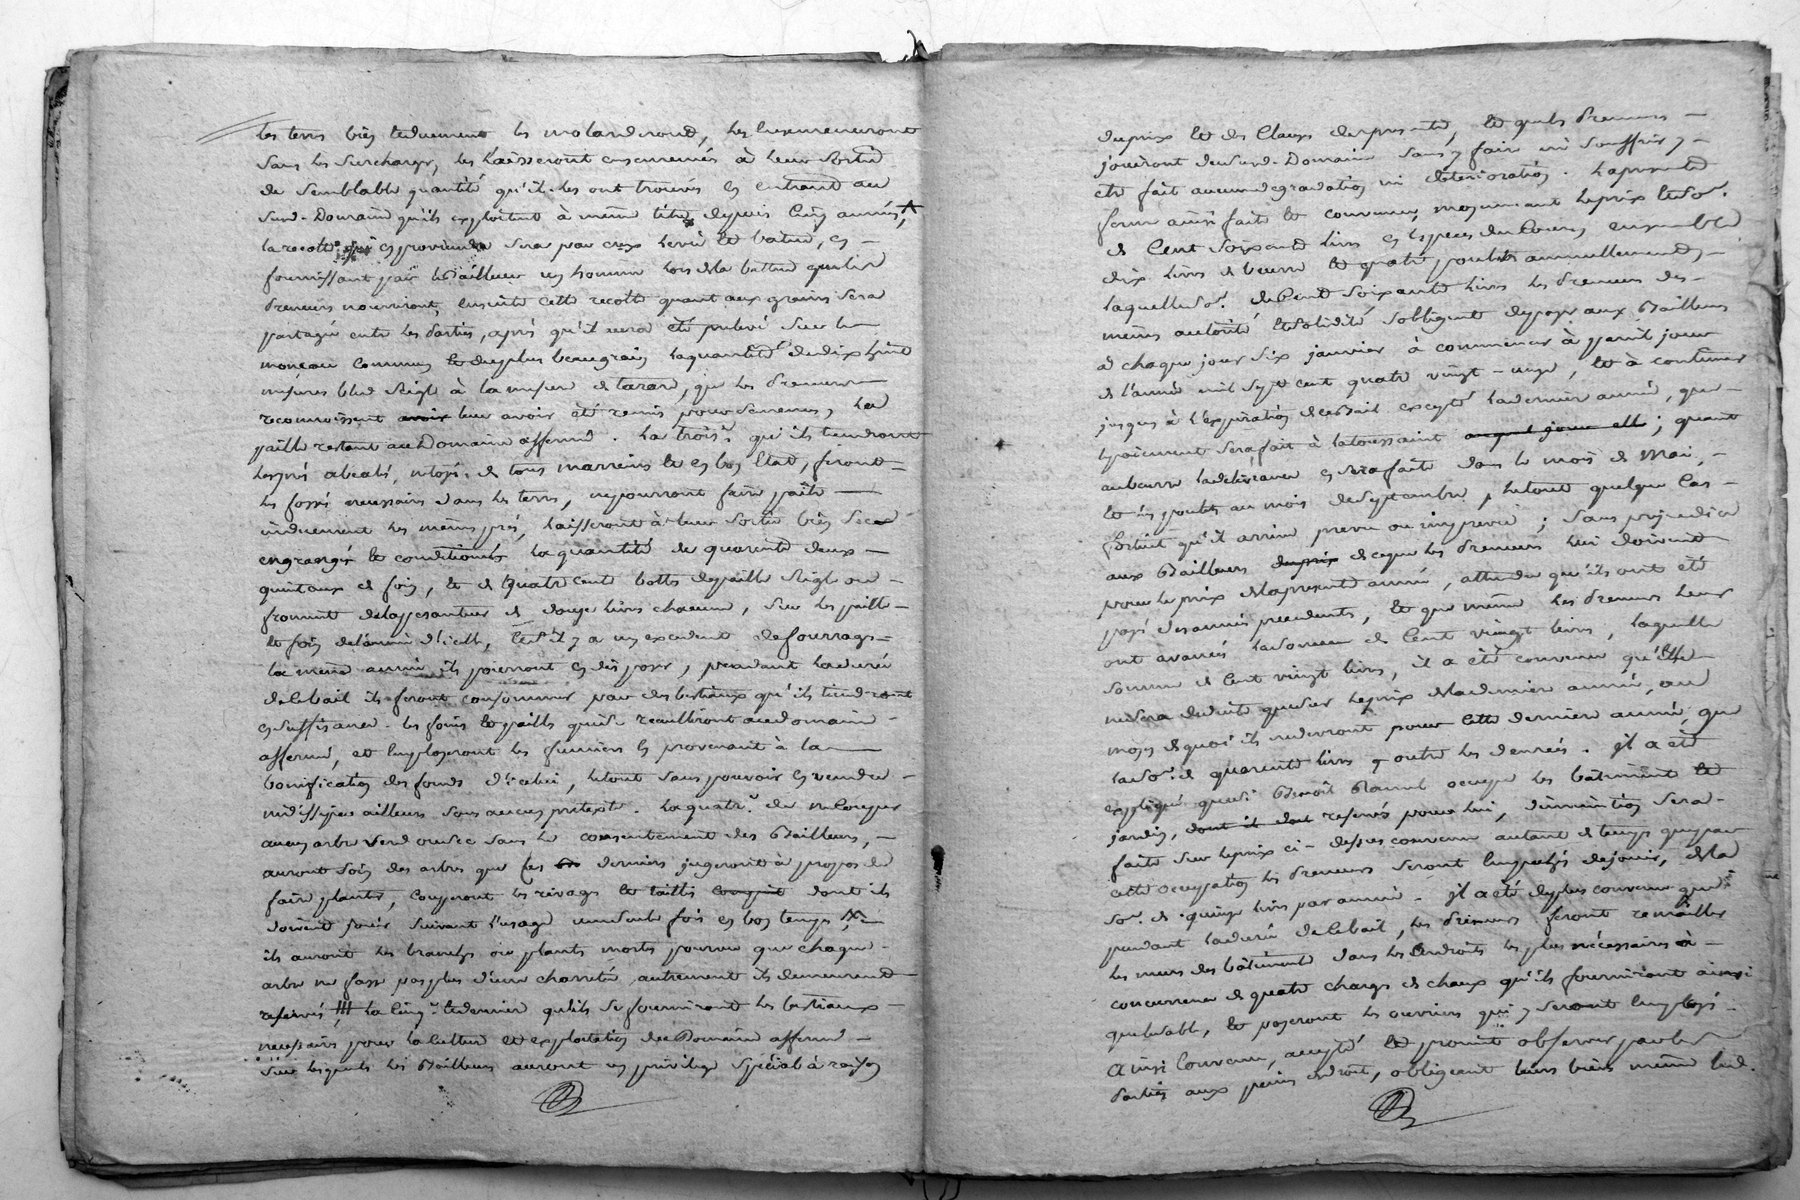 les terres bien duement les
sans les surcharger, les laisseront ensemencées à leur sortie
de semblable quantité qu'il les ont trouvés en entrant au
susd. Domaine qu'ils exploitent à même titre depuis cinq années,
la recolte en provenüe sera par eux levée et batue, en
fournissant par le Bailleur un homme lors de la battue que les
Preneurs nourriront, ensuite cette recolte quant aux grains sera
partagée entre les Parties, après qu'il aura été prelevé sur le
monceau commun et du plus beau grain la quantité de dix huit
mesures bled seigle à la mesure de tarare, que les Preneurs
reconnoissent avoir leur avoir été remis pour semences, la
paille restant au Domaine affermé. La trois.e qu'ils tiendront
les prés de tous marreins et en bon Etat, feront
les fossés necessaires dans les terres, ne pourront faire paitre
induement les mêmes prés, laisseront à leur sortie bien secs
engrangés et conditionnés la quantité de quarente deux
quintaux de foin, et de quatre cent bottes de paille seigle ou
froment de la pesanteur de douze livres chacune, sur les paille
et foin de l'année d'icelle, et s'il y a un excedent de fourrages
la même année ils pourront en disposer, pendant la durée
de ce bail ils feront consommer par des bestiaux qu'ils tiendront
en suffisance les foins et pailles qui se recuilliront au domaine
affermé, et employeront les fumiers en provenant à la
bonification des fonds d'icelui, le tout sans pouvoir en vendre
ni dissiper ailleurs sous aucun pretexte. La quatr.e de ne couper
aucun arbre verd ou sec sans le consentement des Bailleurs,
auront soin des arbres que ces derniers jugeront à propos de
faire planter, couperont les rivages et taillis dont ils
doivent jouir suivant l'usage une seule fois en bon temps,
ils auront les branches ou plants morts pourvu que chaque
arbre ne fasse pas plus d'une charretée, autrement ils demeureront
reservés, la cinq.e et derniere qu'ils se fourniront les bestiaux
necessaires pour la culture et exploitation du Domaine affermé
sur lesquels les Bailleurs auront un privilege special à raison
du prix et des clauses des presentes, et que les Preneurs
joüiront dud. sus. Domaine sans y faire ni souffrir y
etre fait aucune degradation ni deterioration. La presente
ferme ainsi faite et convenue, moyennant le prix et so.e
de Cent soixante livres en especes de cours, ensemble
dix livres de beurre et quatre poulets annuellement,
laquelle so.e de Cent soixante livres les Preneurs des
mêmes autorité et solidité s'obligent de payer aux Bailleurs
à chaque jour six janvier à commencer à pareil jour
de l'année mil sept cent quatre vingt-onze, et à continuer
jusques à l'expiration de ce Bail excepté la derniere année, que
le paiement sera fait à la toussaint auquel jour elle; quant
au beurre la delivrance en sera faite dans le mois de Mai,
et des poulets au mois de septembre, le tout quelque cas
fortuit qu'il arrive prevu ou imprevu; sans prejudice
aux Bailleurs du prix de ce que les Preneurs lui doivent
pour le prix de la presente année, attendu qu'ils ont été
payé des années precedentes, et que même les Preneurs leurs
ont avancés la somme de Cent vingt livres, laquelle
somme de Cent vingt livres, il a été convenu qu'elle
ne sera deduite que sur le prix de la derniere année, au
moyen de quoi ils ne devront pour cette derniere année, que
la so.e de quarente livres outre les denrées. Il a été
expliqué que si Benoît occupe les bâtiment et
jardin, dont il doit reservés pour lui, diminution sera
faite sur le prix ci-dessus convenu autant de temps que par
cette occupation les Preneurs seront empechés de jouir, de la
so.e de quinze livres par année. Il a été de plus convenu que
pendant la durée de ce bail, les Preneurs feront remailler
les murs des bâtiment dans les endroits les plus nécessaires à
concurrence de quatre chars de chaux qu'ils fourniront ainsi
que le sable, et payeront les ouvriers qui y seront employés.
Ainsi convenu, accepté et promis observer par les
Parties aux peines de droit, obligeant leurs biens même lesd.